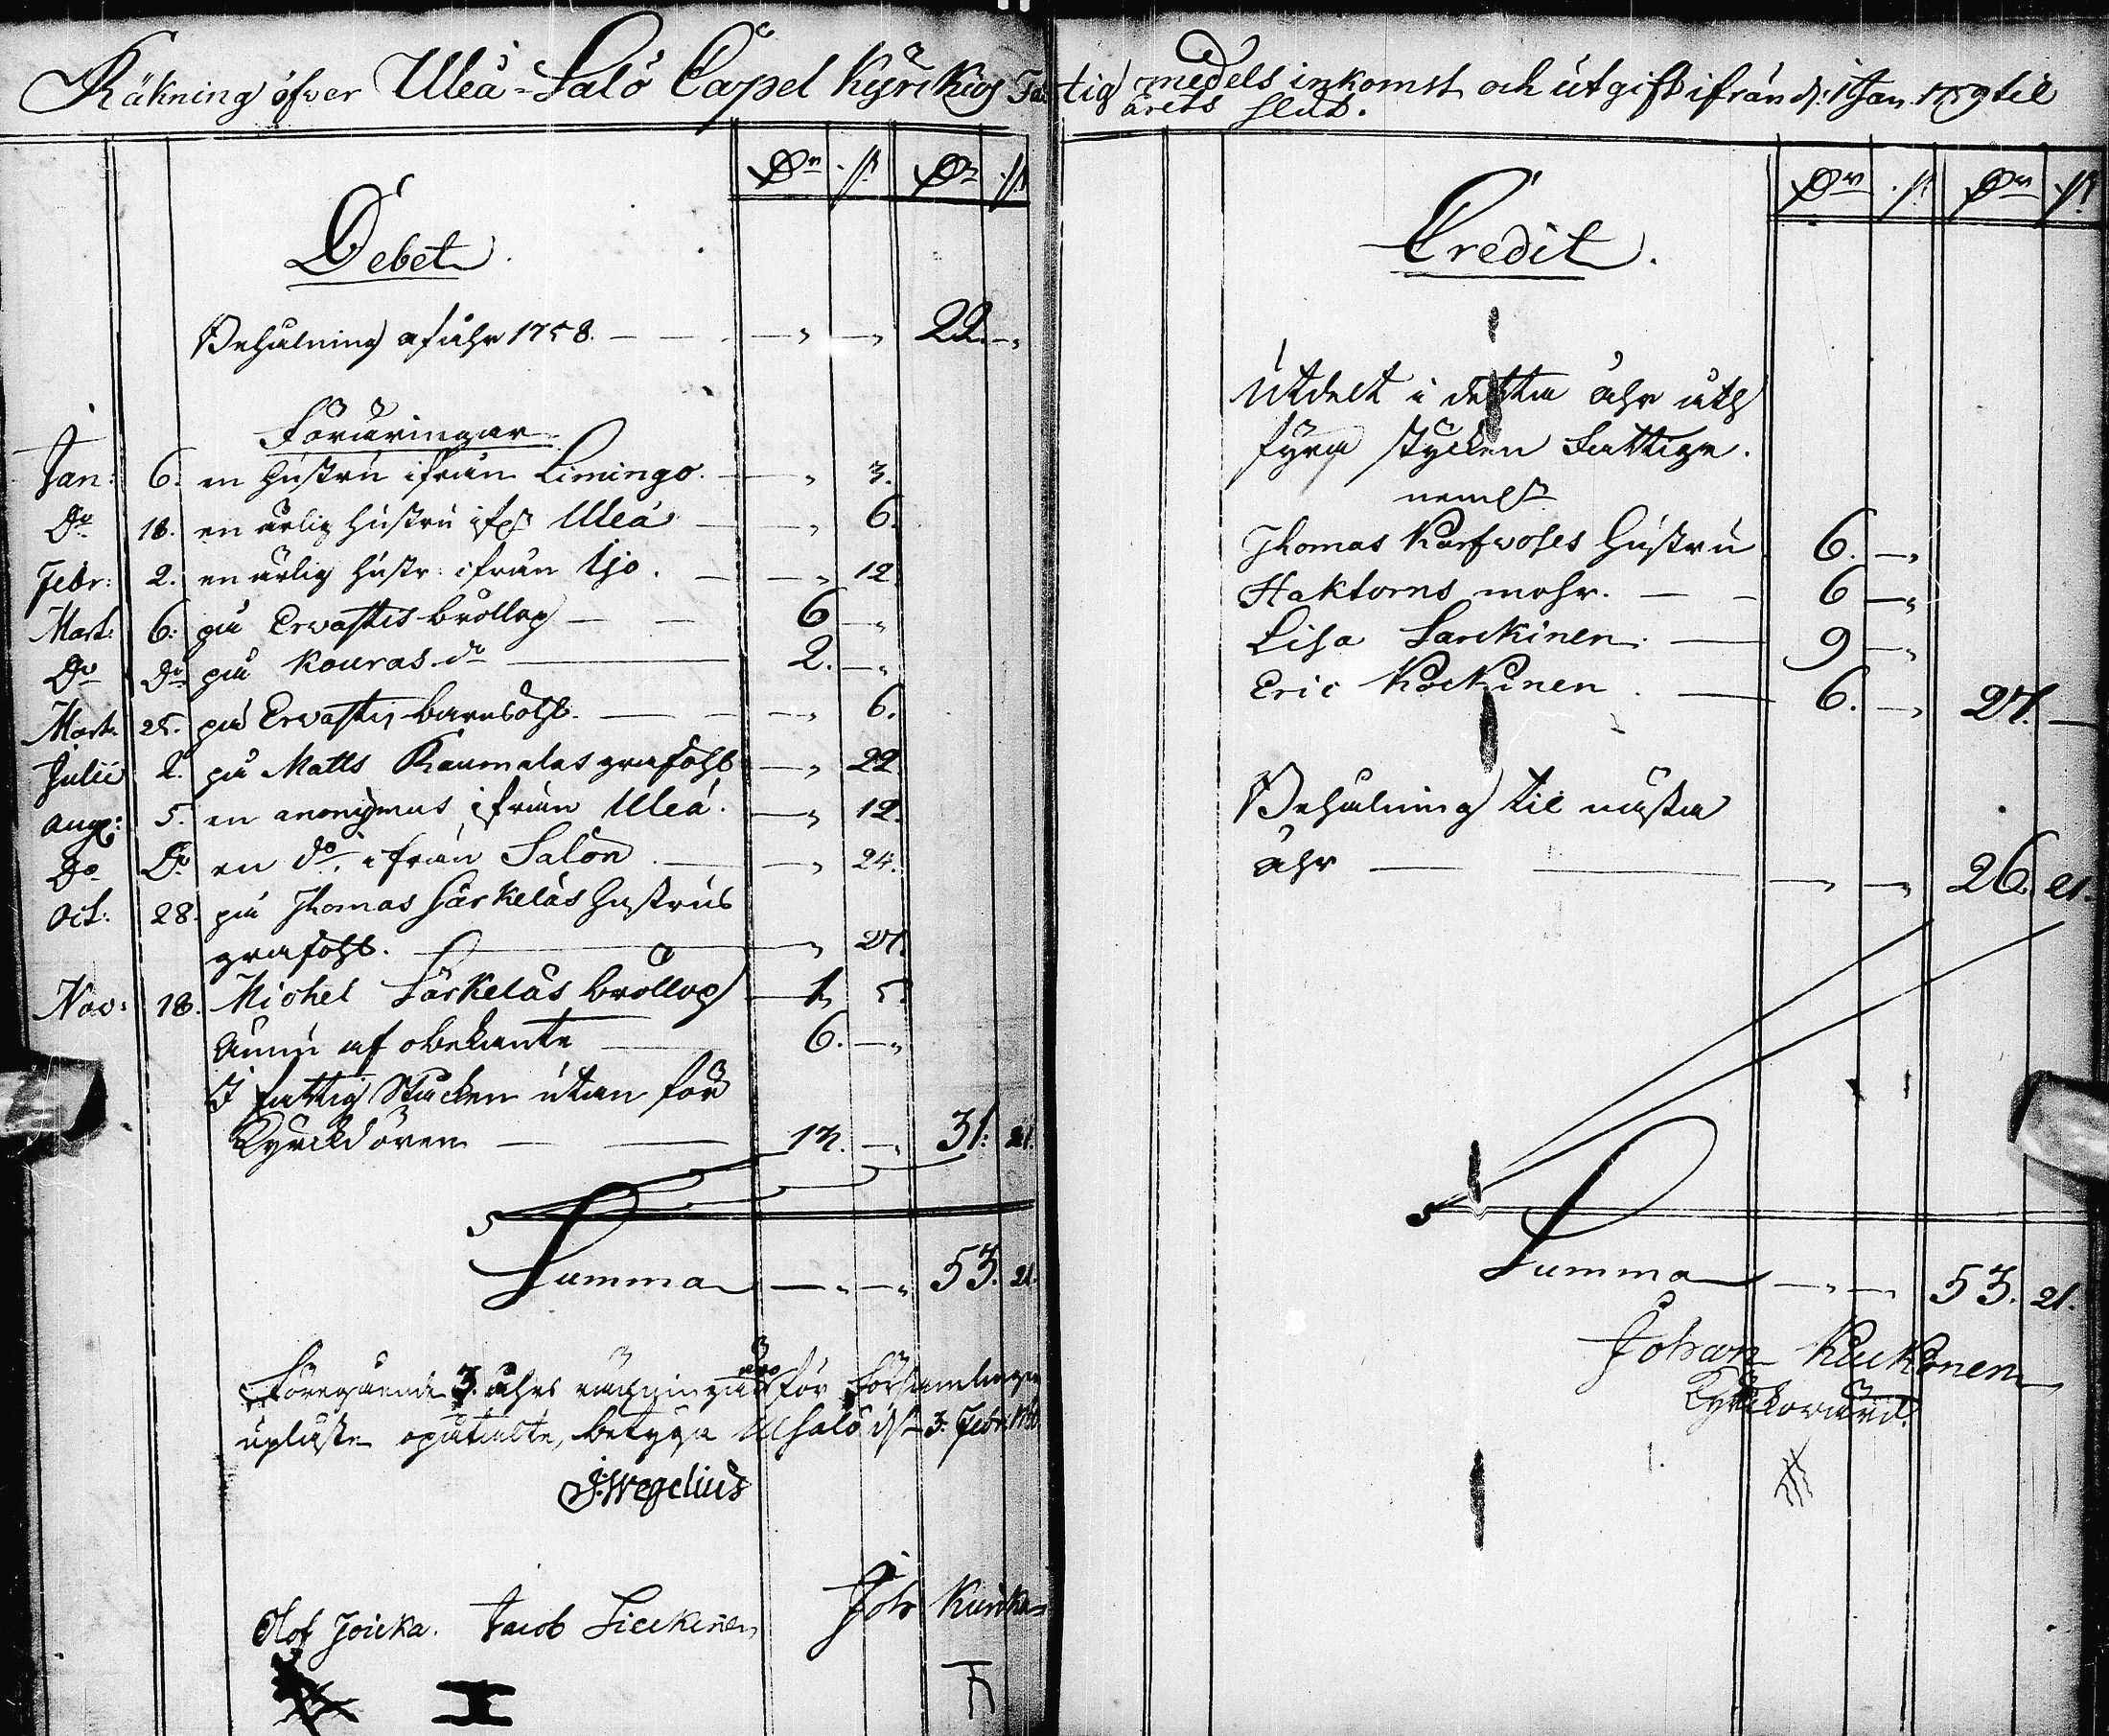 Räkning öfver Uleå-Salö Capel Kyrckios Fattig medels inkomst och utgift ifrån d: 1 Jan. 1759 til
årets slut.
Dr . sr Dr . sr
Debet.
Behålning af åhr 1758. — — — „ — „ 22. — „
Föräringar.
Jan: 6. en hustru ifrån Limingo. — „ 3.
Do 18. en ärlig hustru ifr Uleå — — „ 6.
Febr: 2. en ärlig hustr: ifrån Ijo. — — „ 12.
Mart: 6. på Erwastis bröllop — — 6 — „
Do Do på Kouras do — 2. — „
Mart. 25. på Erwastis barnsöhl. — — „ 6.
Julii 2. på Matts Raumalas grafföhl — „ 22.
Aug: 5. en anonymus ifrån Uleå. — „ 12.
Do Do en do ifrån Salön — — „ 24.
Oct: 28. på Thomas Särkeläs hustrus
grafföhl. — — „ 27.
Nov: 18. Michel Särkeläs bröllop — 1. 5.
af obekante — 6. — „
I fattig Stocken utan för
Kyrckdören — — 13. — „ 31: 21.
Summa — „ — „ 53. 21.
Föregående 3. åhrs räkningar äro för Församlingen
upläste betyga Ulsalö d. 3. Febr.
J: Wegelius
Olof Joucka. Jacob Lieckinen Joh
Dr . sr Dr . sr
Credit.
Utdelt i detta åhr åth
fyra stycken Fattige.
neml:
Thomas Karfwoses hustru 6. — „
Haktorns mohr. — — 6 — „
Lisa Sarckinen. — 9 — „
Eric Kockinen. — 6. — „ 27. —
Behålning til nästa
åhr — — — „ — „ 26. 21.
Summa — „ — „ 53. 21.
Johan Kuckonen
Kyrckovärd.